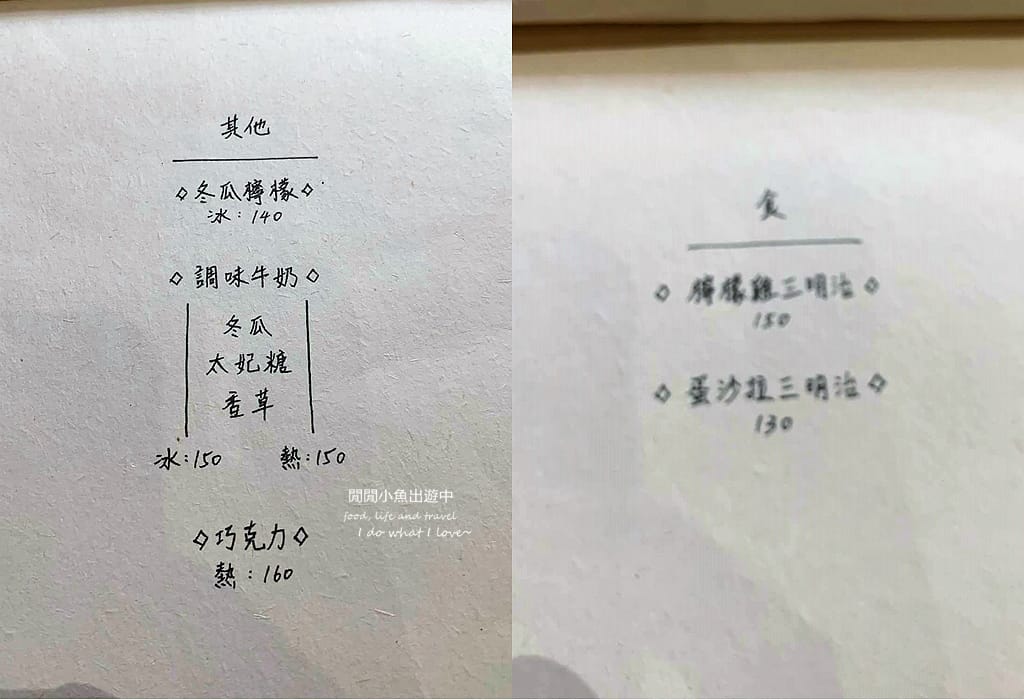 其他
◇冬瓜檸檬◇
冰：140
◇ 調味牛奶 ◇
冬瓜
太妃糖
香草
冰：150 熱：150
◇巧克力◇
熱：160
閒閒小魚出遊中
food, life and travel
I do what I love~
食
◇ 檸檬雞三明治 ◇
150
◇ 蛋沙拉三明治 ◇
130